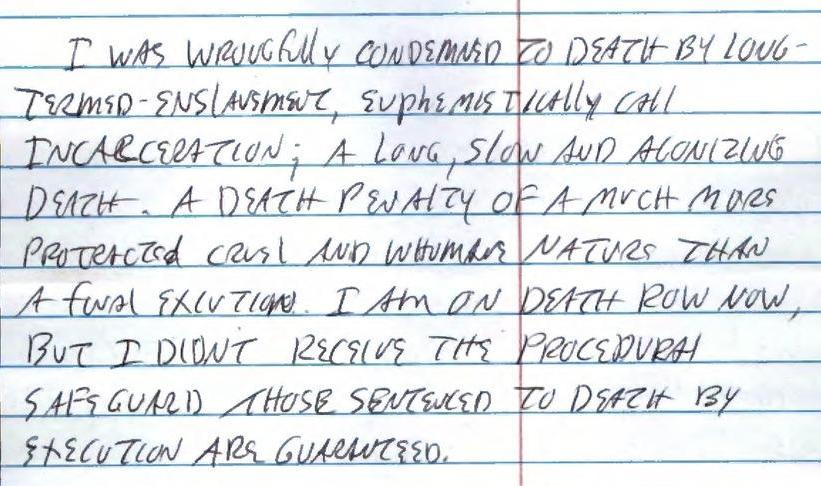 I WAS WROUGFULLY CONDEMNED TO DEATH BY LONG-
TERMED-ENSLAVEMENT, EUPHEMISTICALLY CALL
INCARCERATION; A LONG, SLOW AND AGONIZING
DEATH. A DEATH PENALTY OF A MUCH MORE
PROTRACTED CRUEL AND INHUMANE NATURE THAN
A FINAL EXECUTION. I AM ON DEATH ROW NOW,
BUT I DIDNT RECEIVE THE PROCEDURAL
SAFEGUARD THOSE SENTENCED TO DEATH BY
EXECUTION ARE GUARANTEED.